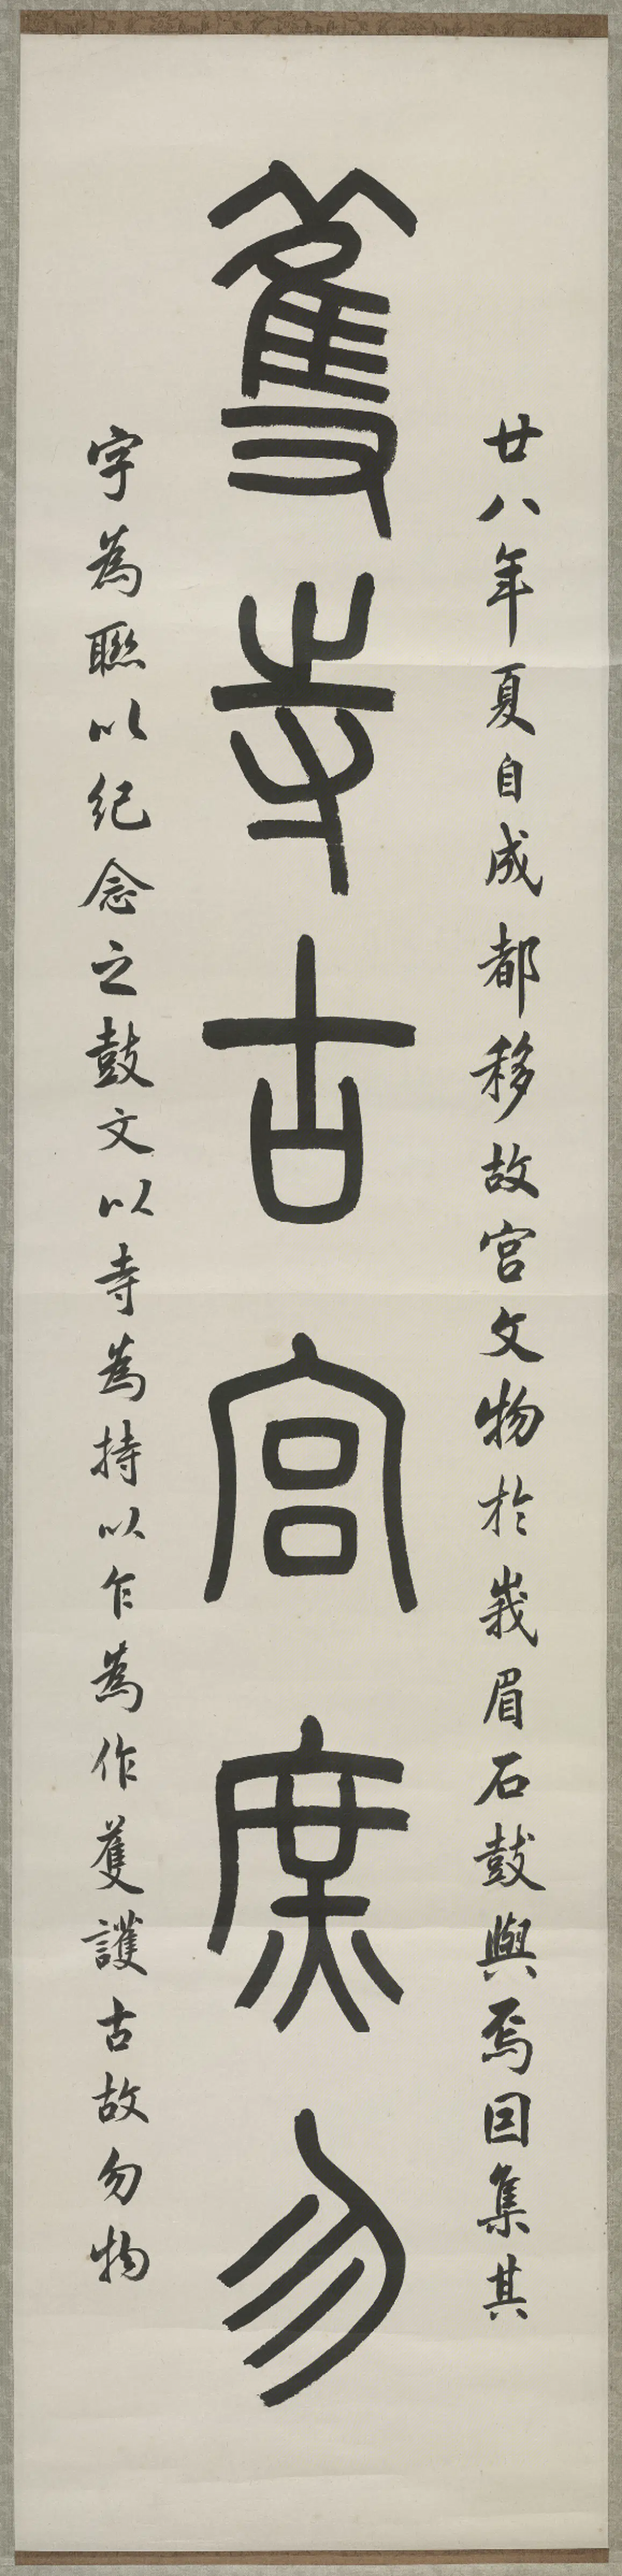 蒦寺古宮庶勿
廿八年夏自成都移故宮文物於峩眉石鼓與焉囙集其
字為聯以紀念之鼓文以寺為持以乍為作蒦護古故勿物